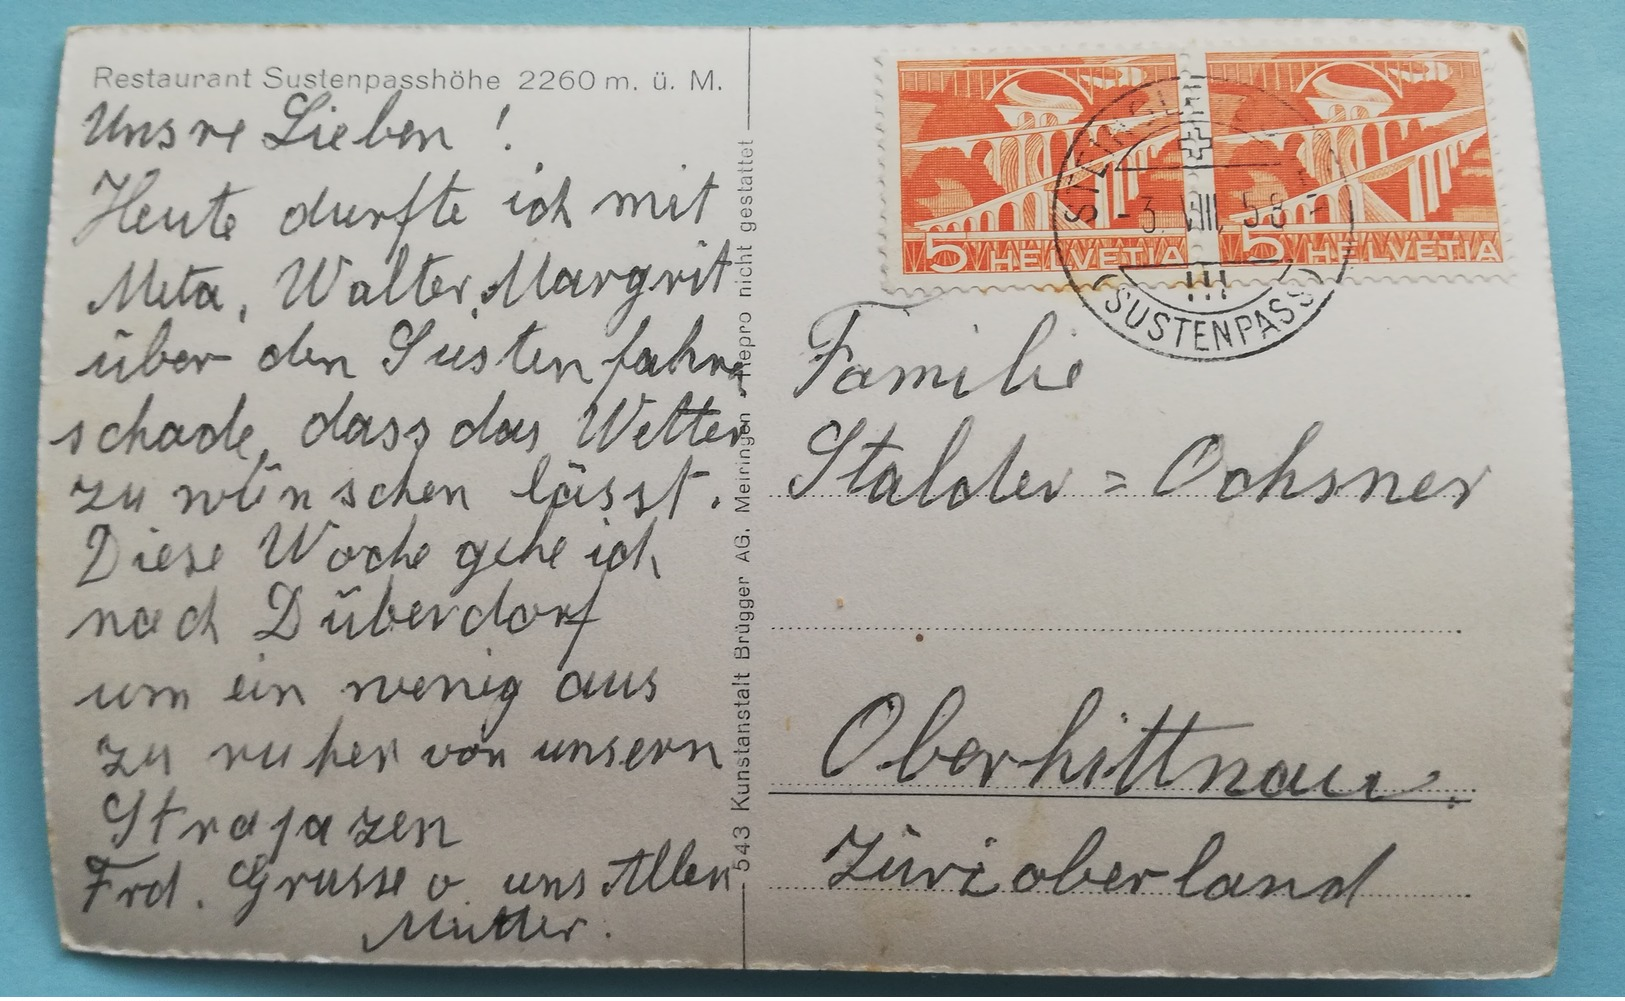 Restaurant Sustenpasshöhe 2260 m. ü. M.
Unsre Lieben !
Heute durfte ich mit
Meta, Walter, Margrit
über den Susten fahre
schade, dass das Wetter
zu wünschen lässt.
Diese Woche gehe ich
nach Düberdorf
um ein wenig aus
zu ruhen von unsern
Strapazen
Frd. Grüsse v. uns Allen
Mutter.
543 Kunstanstalt Brügger AG. Meiringen - Repro nicht gestattet
5 HELVETIA
5 HELVETIA
-3. VIII. 58 -
(SUSTENPASS)
Familie
Stalder = Ochsner
Oberhittnau.
Zürioberland